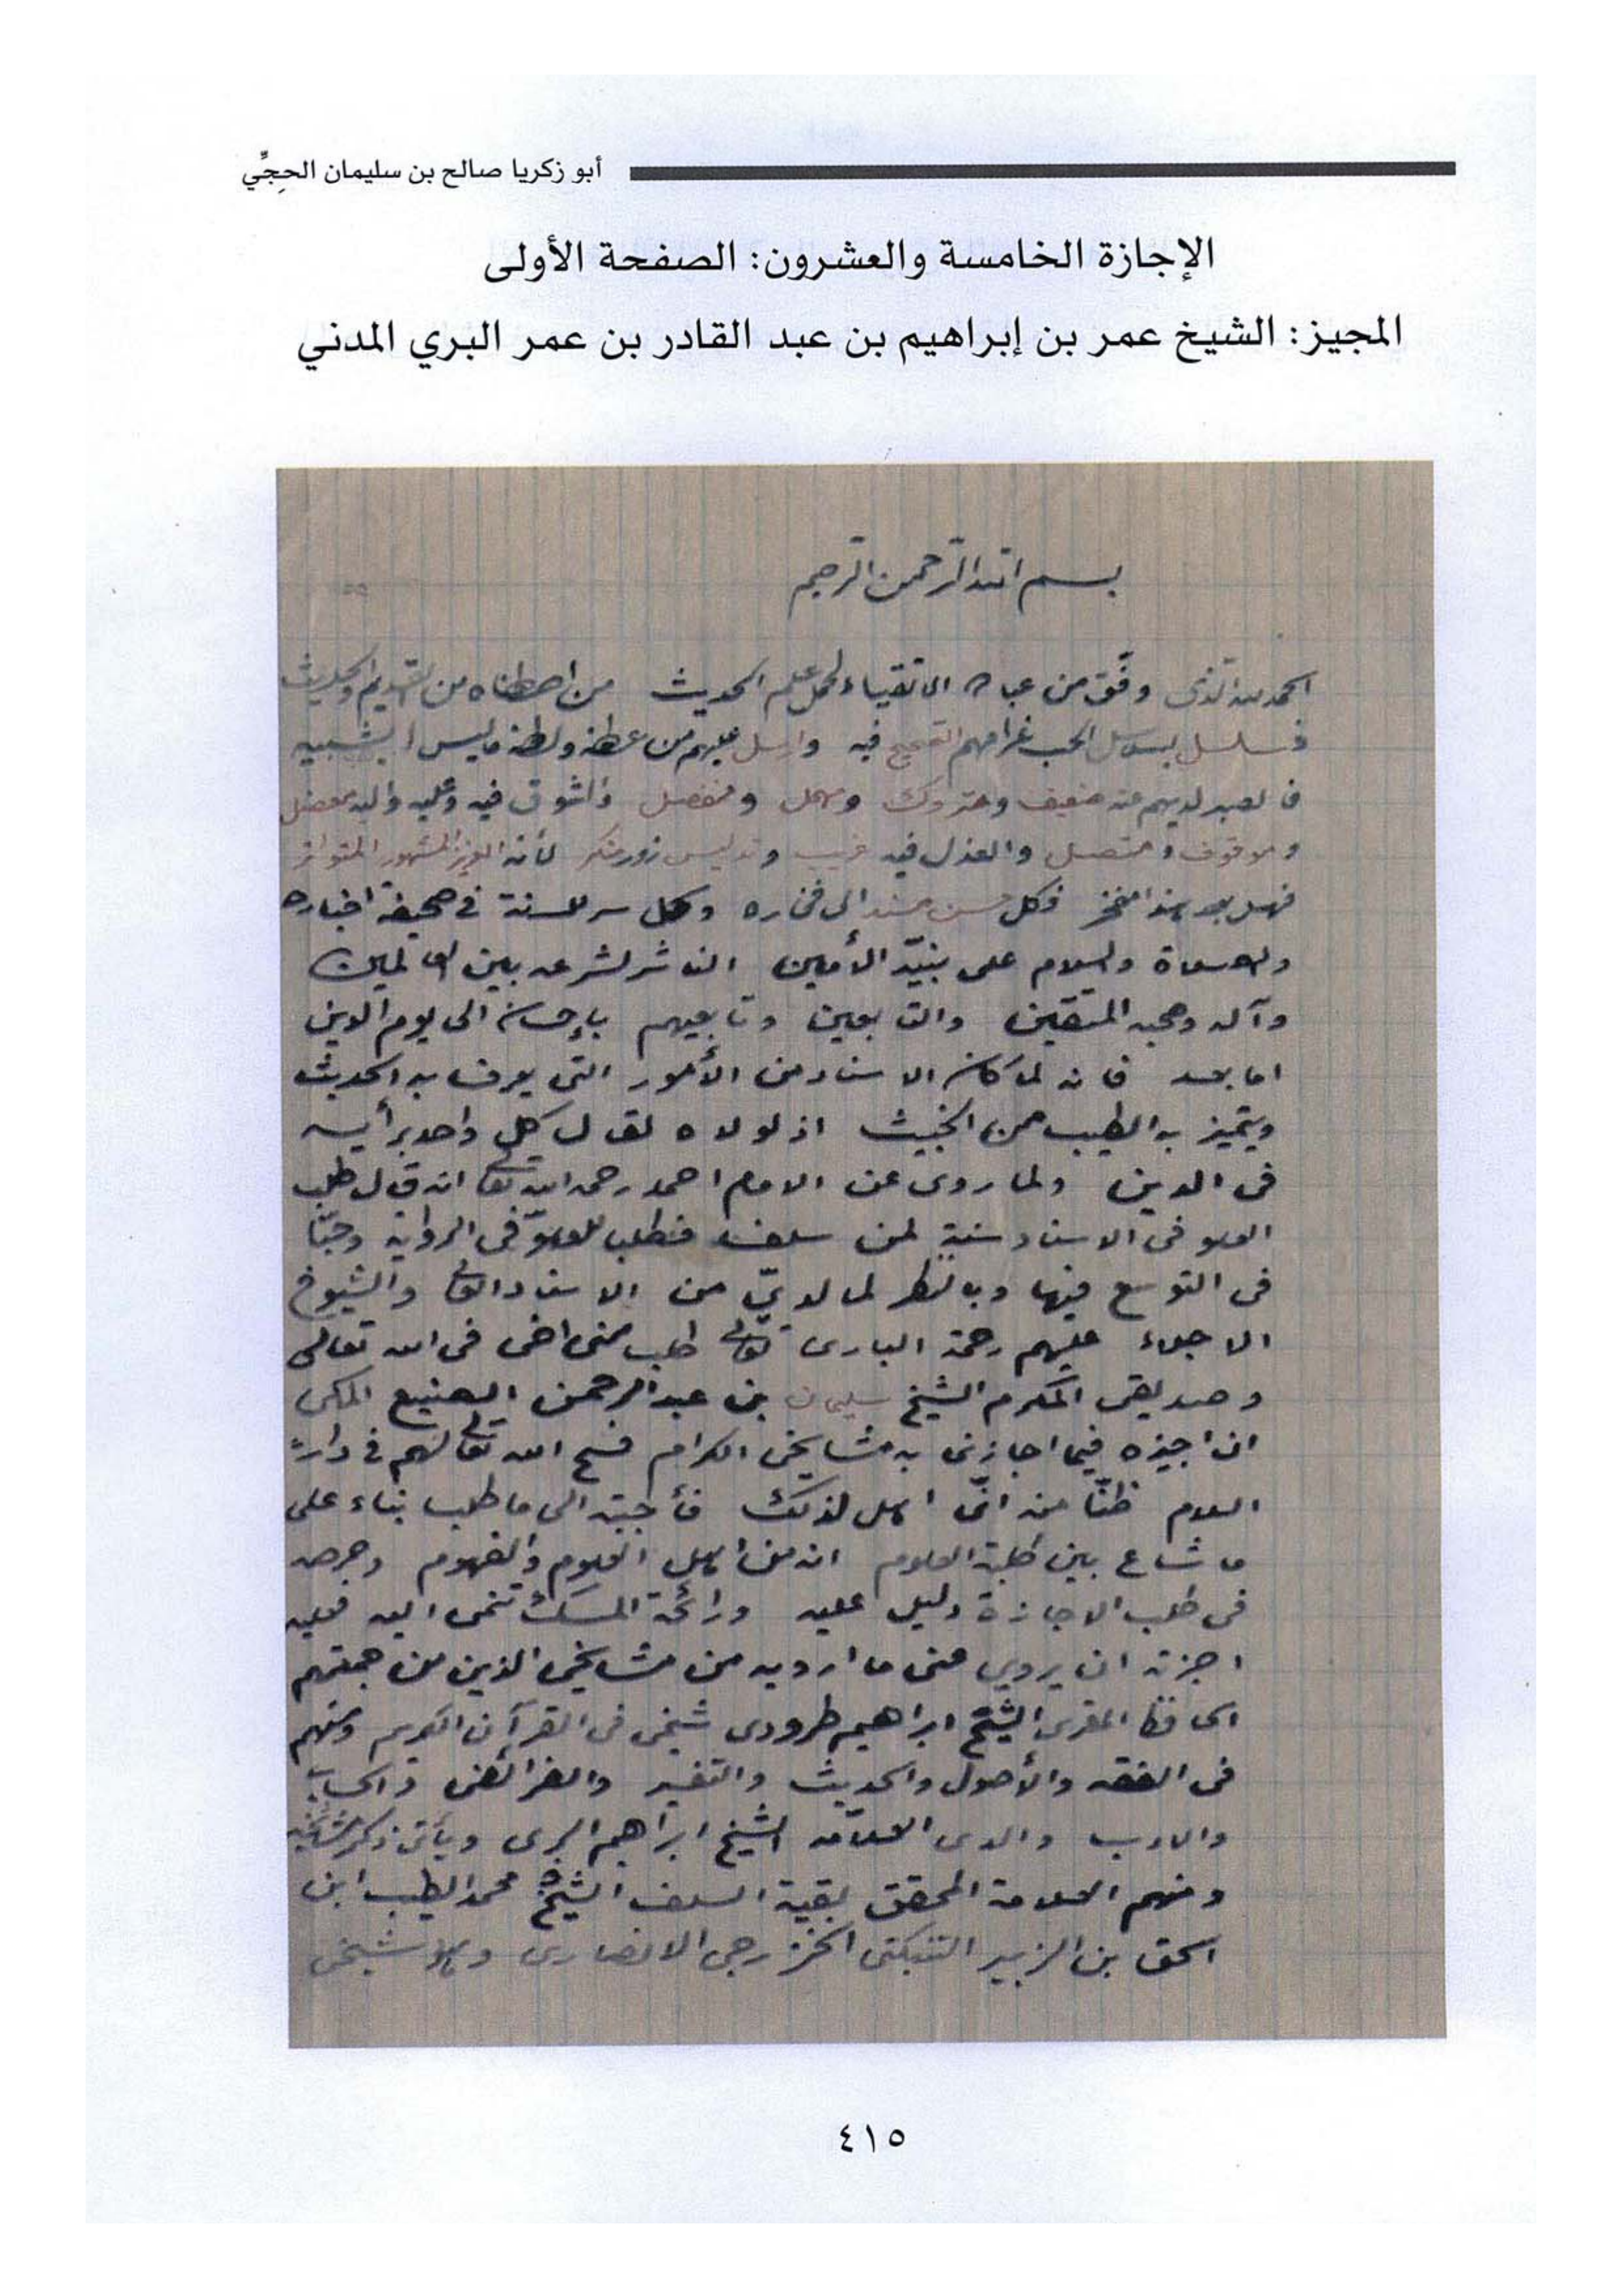 أبو زكريا صالح بن سليمان الحجِّي
الإجازة الخامسة والعشرون: الصفحة الأولى
المجيز: الشيخ عمر بن إبراهيم بن عبد القادر بن عمر البري المدني
بسم الله الرحمن الرحيم
الحمد لله الذى وفّق من عباده الاتقياء لحمل علم الحديث من اصطفاه من القديم والحديث
فسلسل بسلاسل الحب غرامهم الصحيح فيه وارسل عليهم من عطفه ولطفه ماليس له شبيه
فالصبر لديهم عنه ضعيف ومتروك ومهمل ومنفصل والشوق فيه وعليه واليه معضل
وموقوف ومتصل والعذل فيه غريب وتدليس زور منكر لأنه العزيز المشهور المتواتر
فهل بعد هذا مفخر فكل حسن مسند الى فخاره وكل سر للسنة في صحيفة اخباره
والصلاة والسلام على نبيّه الأمين الناشر لشرعه بين العالمين
وآله وصحبه المتقين والتابعين وتابعيهم بإحسان الى يوم الدين
اما بعد فانه لما كان الاسناد من الأمور التى يعرف به الحديث
ويتميز به الطيب من الخبيث اذ لولاه لقال كل واحد برأيه
فى الدين ولما روى عن الامام احمد رحمه الله تعالى انه قال طلب
العلو فى الاسناد سنة لمن سلف فطلب للعلوّ فى الرواية وحبّا
فى التوسع فيها وبالنظر لما لديّ من الاسناد العالى والشيوخ
الاجلاء عليهم رحمة البارى تعالى طلب منى اخى فى الله تعالى
وصديقى المكرم الشيخ سليمان بن عبدالرحمن الصنيع المكى
ان اجيزه فيما اجازنى به مشايخى الكرام فسح الله تعالى لهم في دار
السلام ظنّا منه انّى اهل لذلك فأجبته الى ما طلب بناء على
ما شاع بين طلبة العلوم انه من اهل العلوم والفهوم وحرصه
فى طلب الاجازة دليل عليه ورائحة المسك تنمى اليه فعليه
اجزته ان يروي عنى ما ارويه من مشايخى الذين من جملتهم
الحافظ المقرى الشيخ ابراهيم طرودى شيخى فى القرآن الكريم ومنهم
فى الفقه والأصول والحديث والتفسير والفرائض والحساب
والادب والدى العلاّمه الشيخ ابراهيم البرى ويأتى ذكر مشايخه
ومنهم العلامة المحقق بقية السلف الشيخ محمد الطيب ابن
اسحق بن الزبير التنبكتى الخزرجى الانصارى وهو شيخى
٤١٥